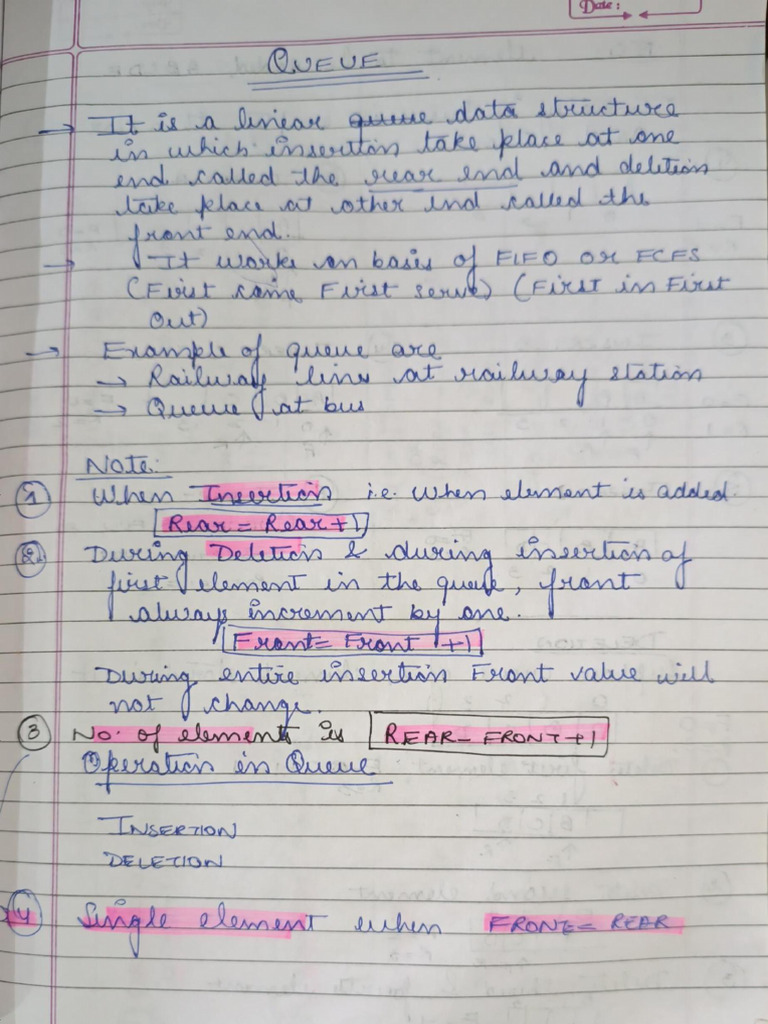 Date:
QUEUE
→ It is a linear queue data structure
in which insertion take place at one
end called the rear end and deletion
take place at other end called the
front end.
→ It works on basis of FIFO or FCFS
(First come First serve) (First in First
Out)
→ Example of queue are
→ Railway line at railway station
→ Queue at bus
Note:
1 When Insertion i.e. when element is added.
Rear = Rear + 1
2. During Deletion & during insertion of
first element in the queue, front
always increment by one.
Front = Front + 1
During entire insertion Front value will
not change.
3 No. of elements is REAR - FRONT + 1
Operation in Queue
INSERTION
DELETION
4 Single element when FRONT = REAR